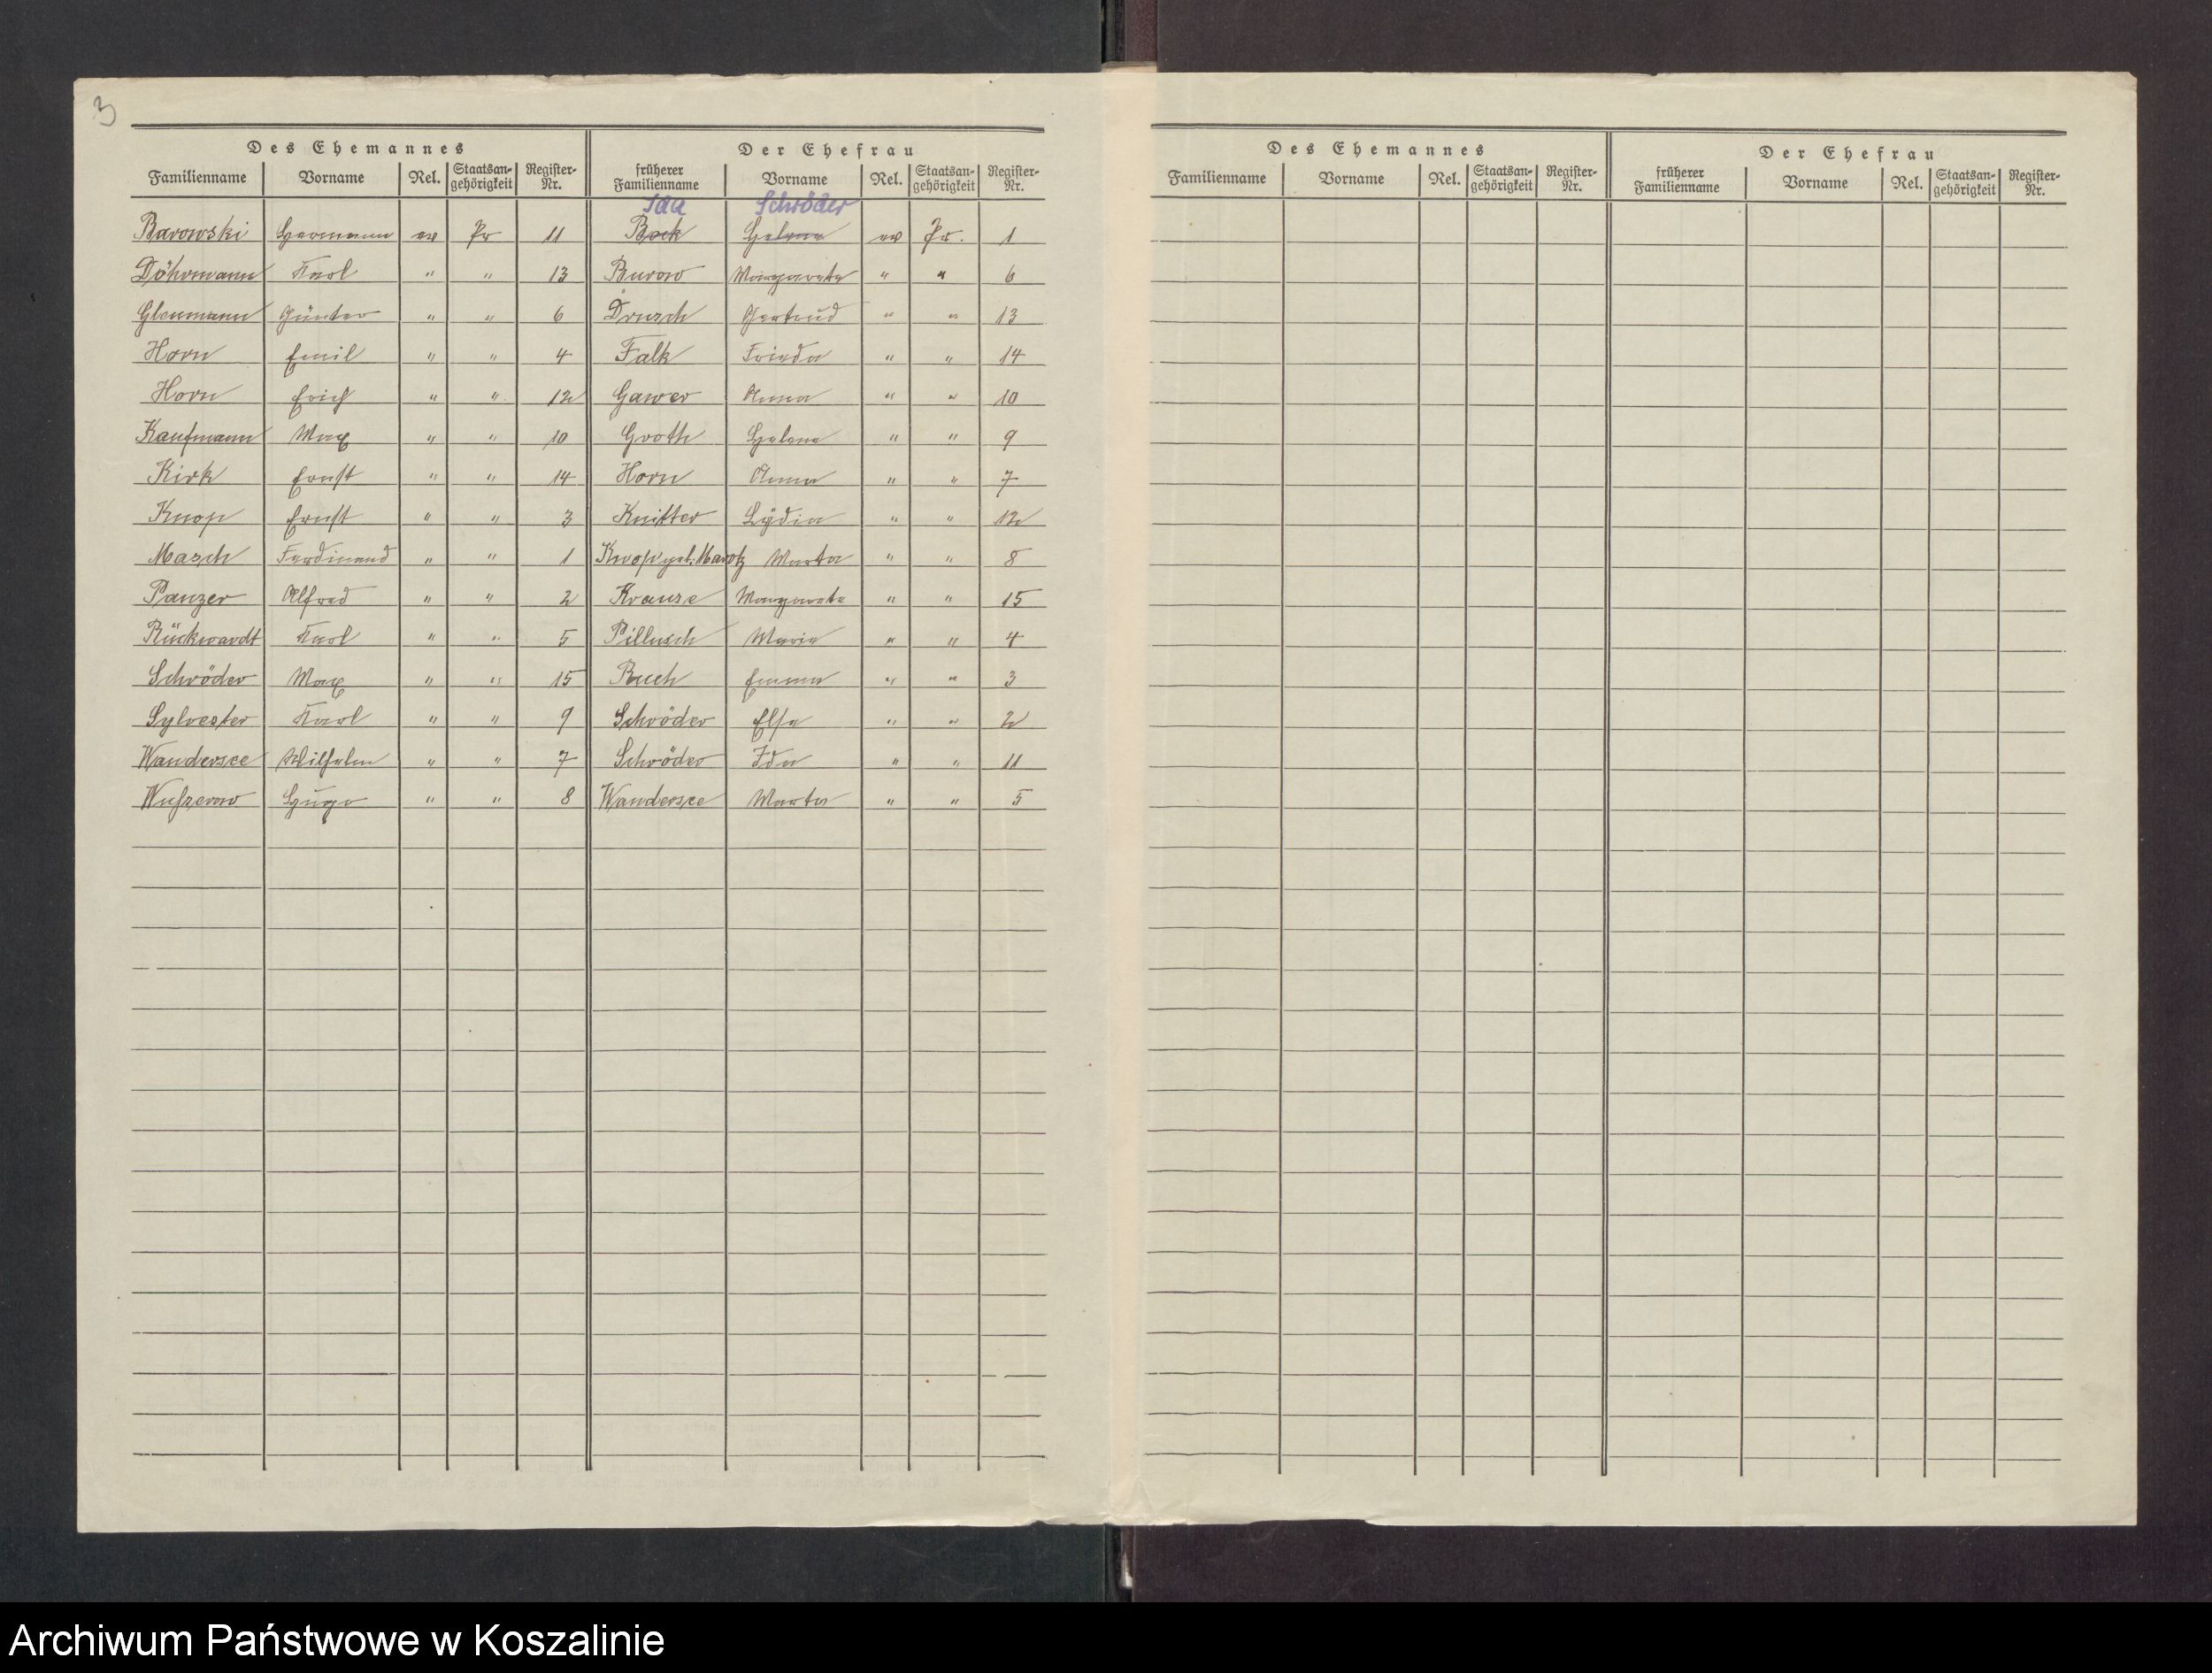 3
Des Ehemannes Der Ehefrau
Familienname Vorname Rel. Staatsan-gehörigkeit Register-Nr. früherer Familienname Vorname Rel. Staatsan-gehörigkeit Register-Nr.
Ida Schröder
Barowski Hermann ev Pr 11 Bock Helene ev Pr. 1
Döhrmann Karl " " 13 Burow Margarete " " 6
Günter " " 6 Drusch Gertrud " " 13
Horn Emil " " 4 Falk Frieda " " 14
Horn Erich " " 12 Gawer Anna " " 10
Kaufmann Max " " 10 Groth Helene " " 9
Kirk Ernst " " 14 Horn Anna " " 7
Knop Ernst " " 3 Knitter Lydia " " 12
Masch Ferdinand " " 1 Knop geb. Marotz Marta " " 8
Panzer Alfred " " 2 Krause Margarete " " 15
Rückwardt Karl " " 5 Pillusch Marie " " 4
Schröder Max " " 15 Ruch Emma " " 3
Sylvester Karl " " 9 Schröder Elsa " " 2
Wandersee Wilhelm " " 7 Schröder Ida " " 11
Hugo " " 8 Wandersee Marta " " 5
Des Ehemannes Der Ehefrau
Familienname Vorname Rel. Staatsan-gehörigkeit Register-Nr. früherer Familienname Vorname Rel. Staatsan-gehörigkeit Register-Nr.
Archiwum Państwowe w Koszalinie